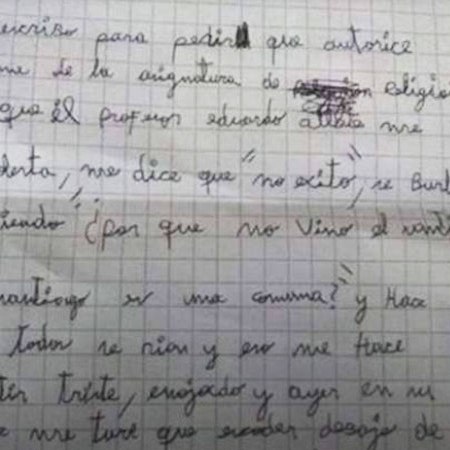 escribo para pedir que autorice
me de la asignatura de religio
que él profesor eduardo me
lerta, me dice que "no exito", se Burl
iendo "¿por que no Vino el
es una comuna?" y Hace
todos se rian y eso me Hace
tir triste, enojado y ayer en su
me tuve que esconder debajo de